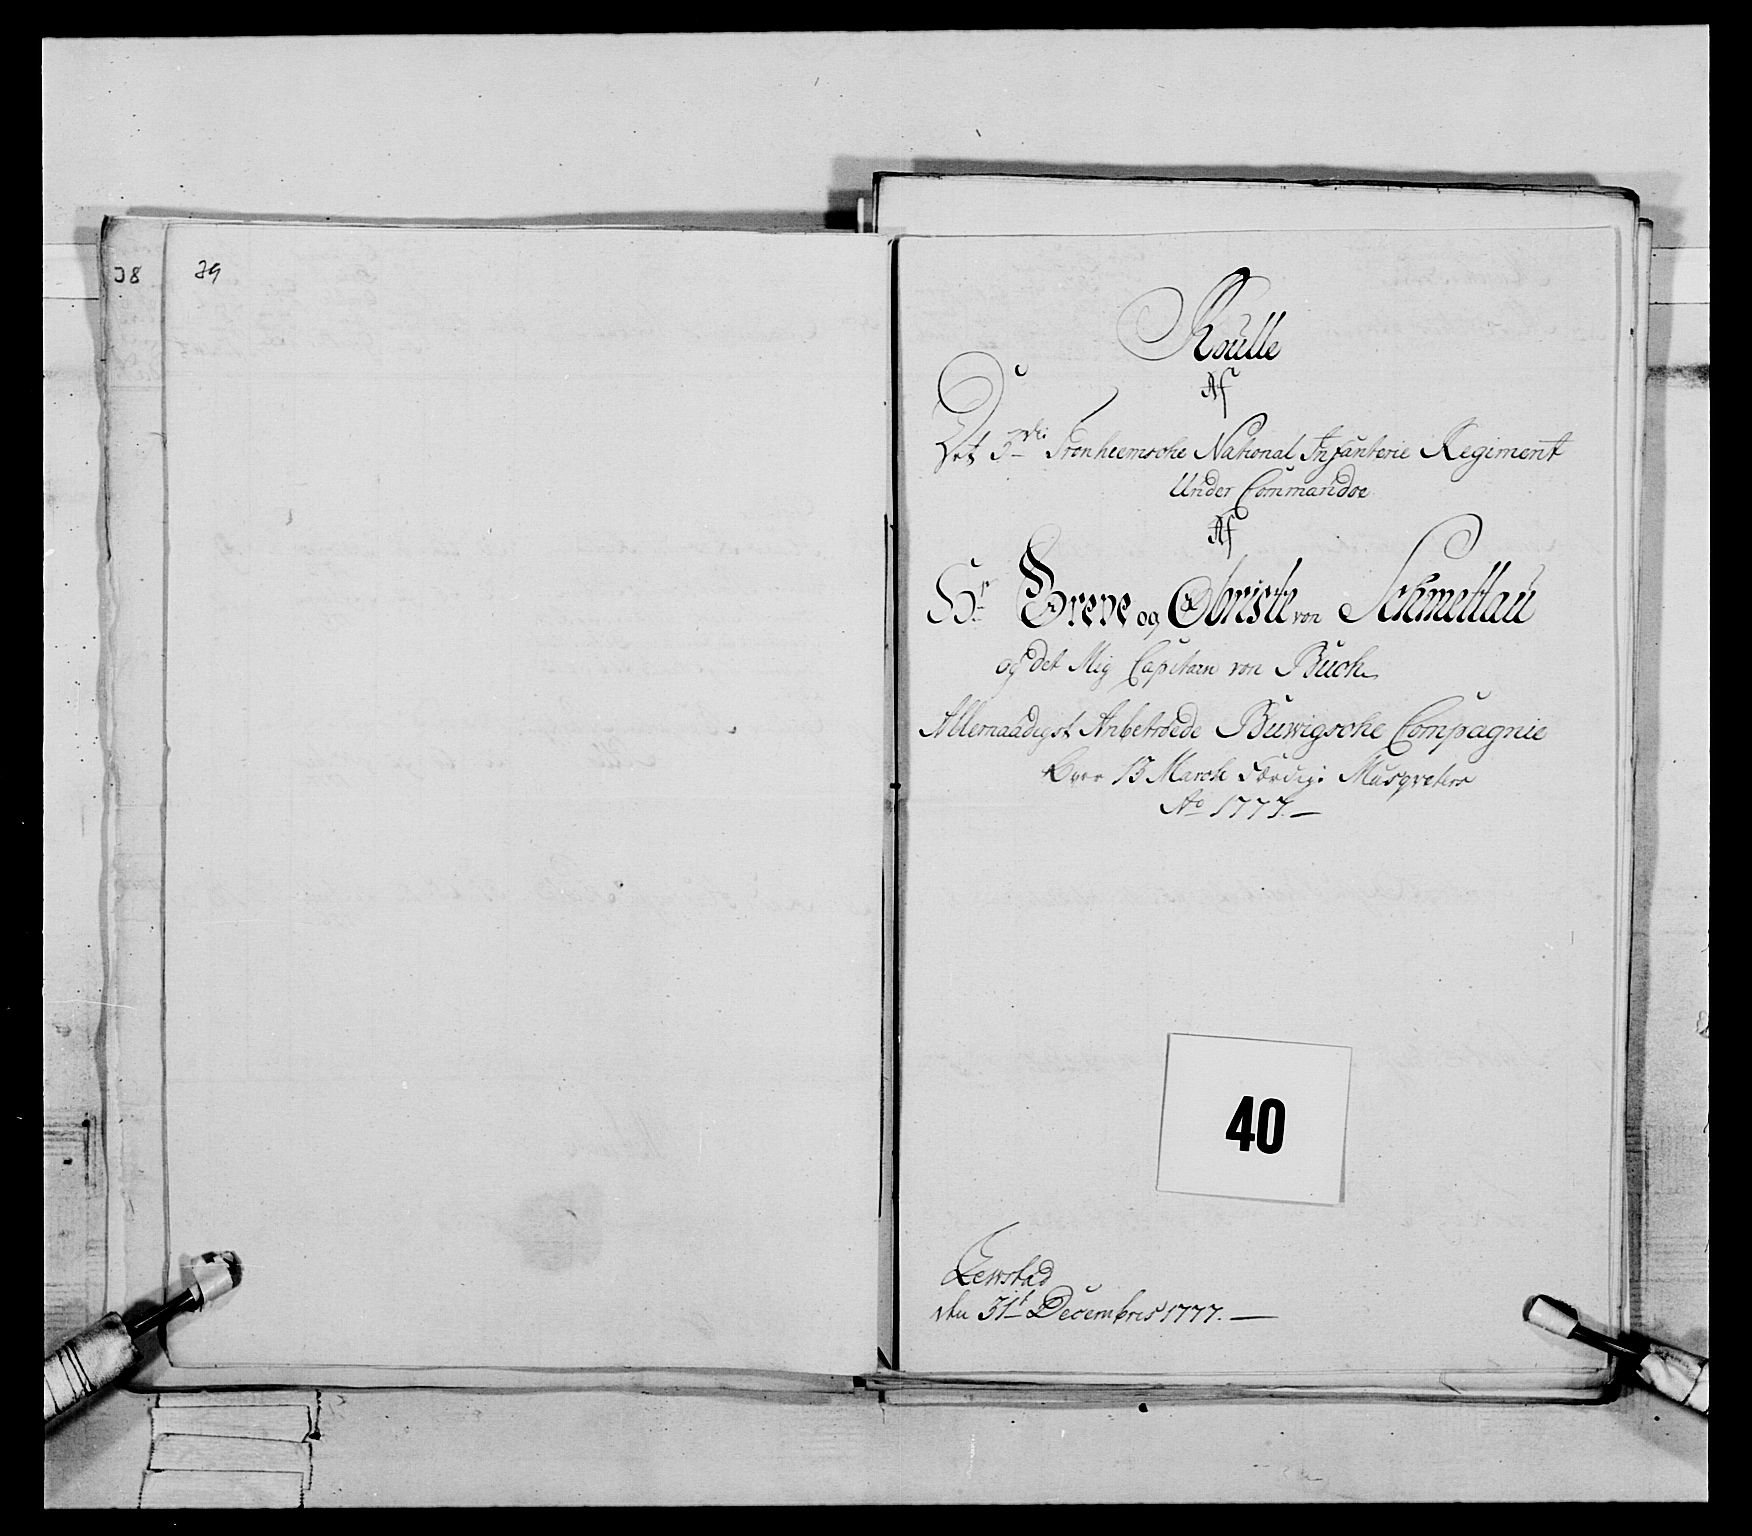 38
39
Roulle
Af
Det 3die Tronheemsche National Infanterie Regiment
Under Commandoe
Af
Hr Greve og Obriste von Schmettau
og det Mig Capitain von Buch
Allernaadigst Anbetroede Buwigsche Compagnie
Over 13 March Færdige Musqveterer
Ao 1777.
40
Lewstad
den 31t Decembris 1777.